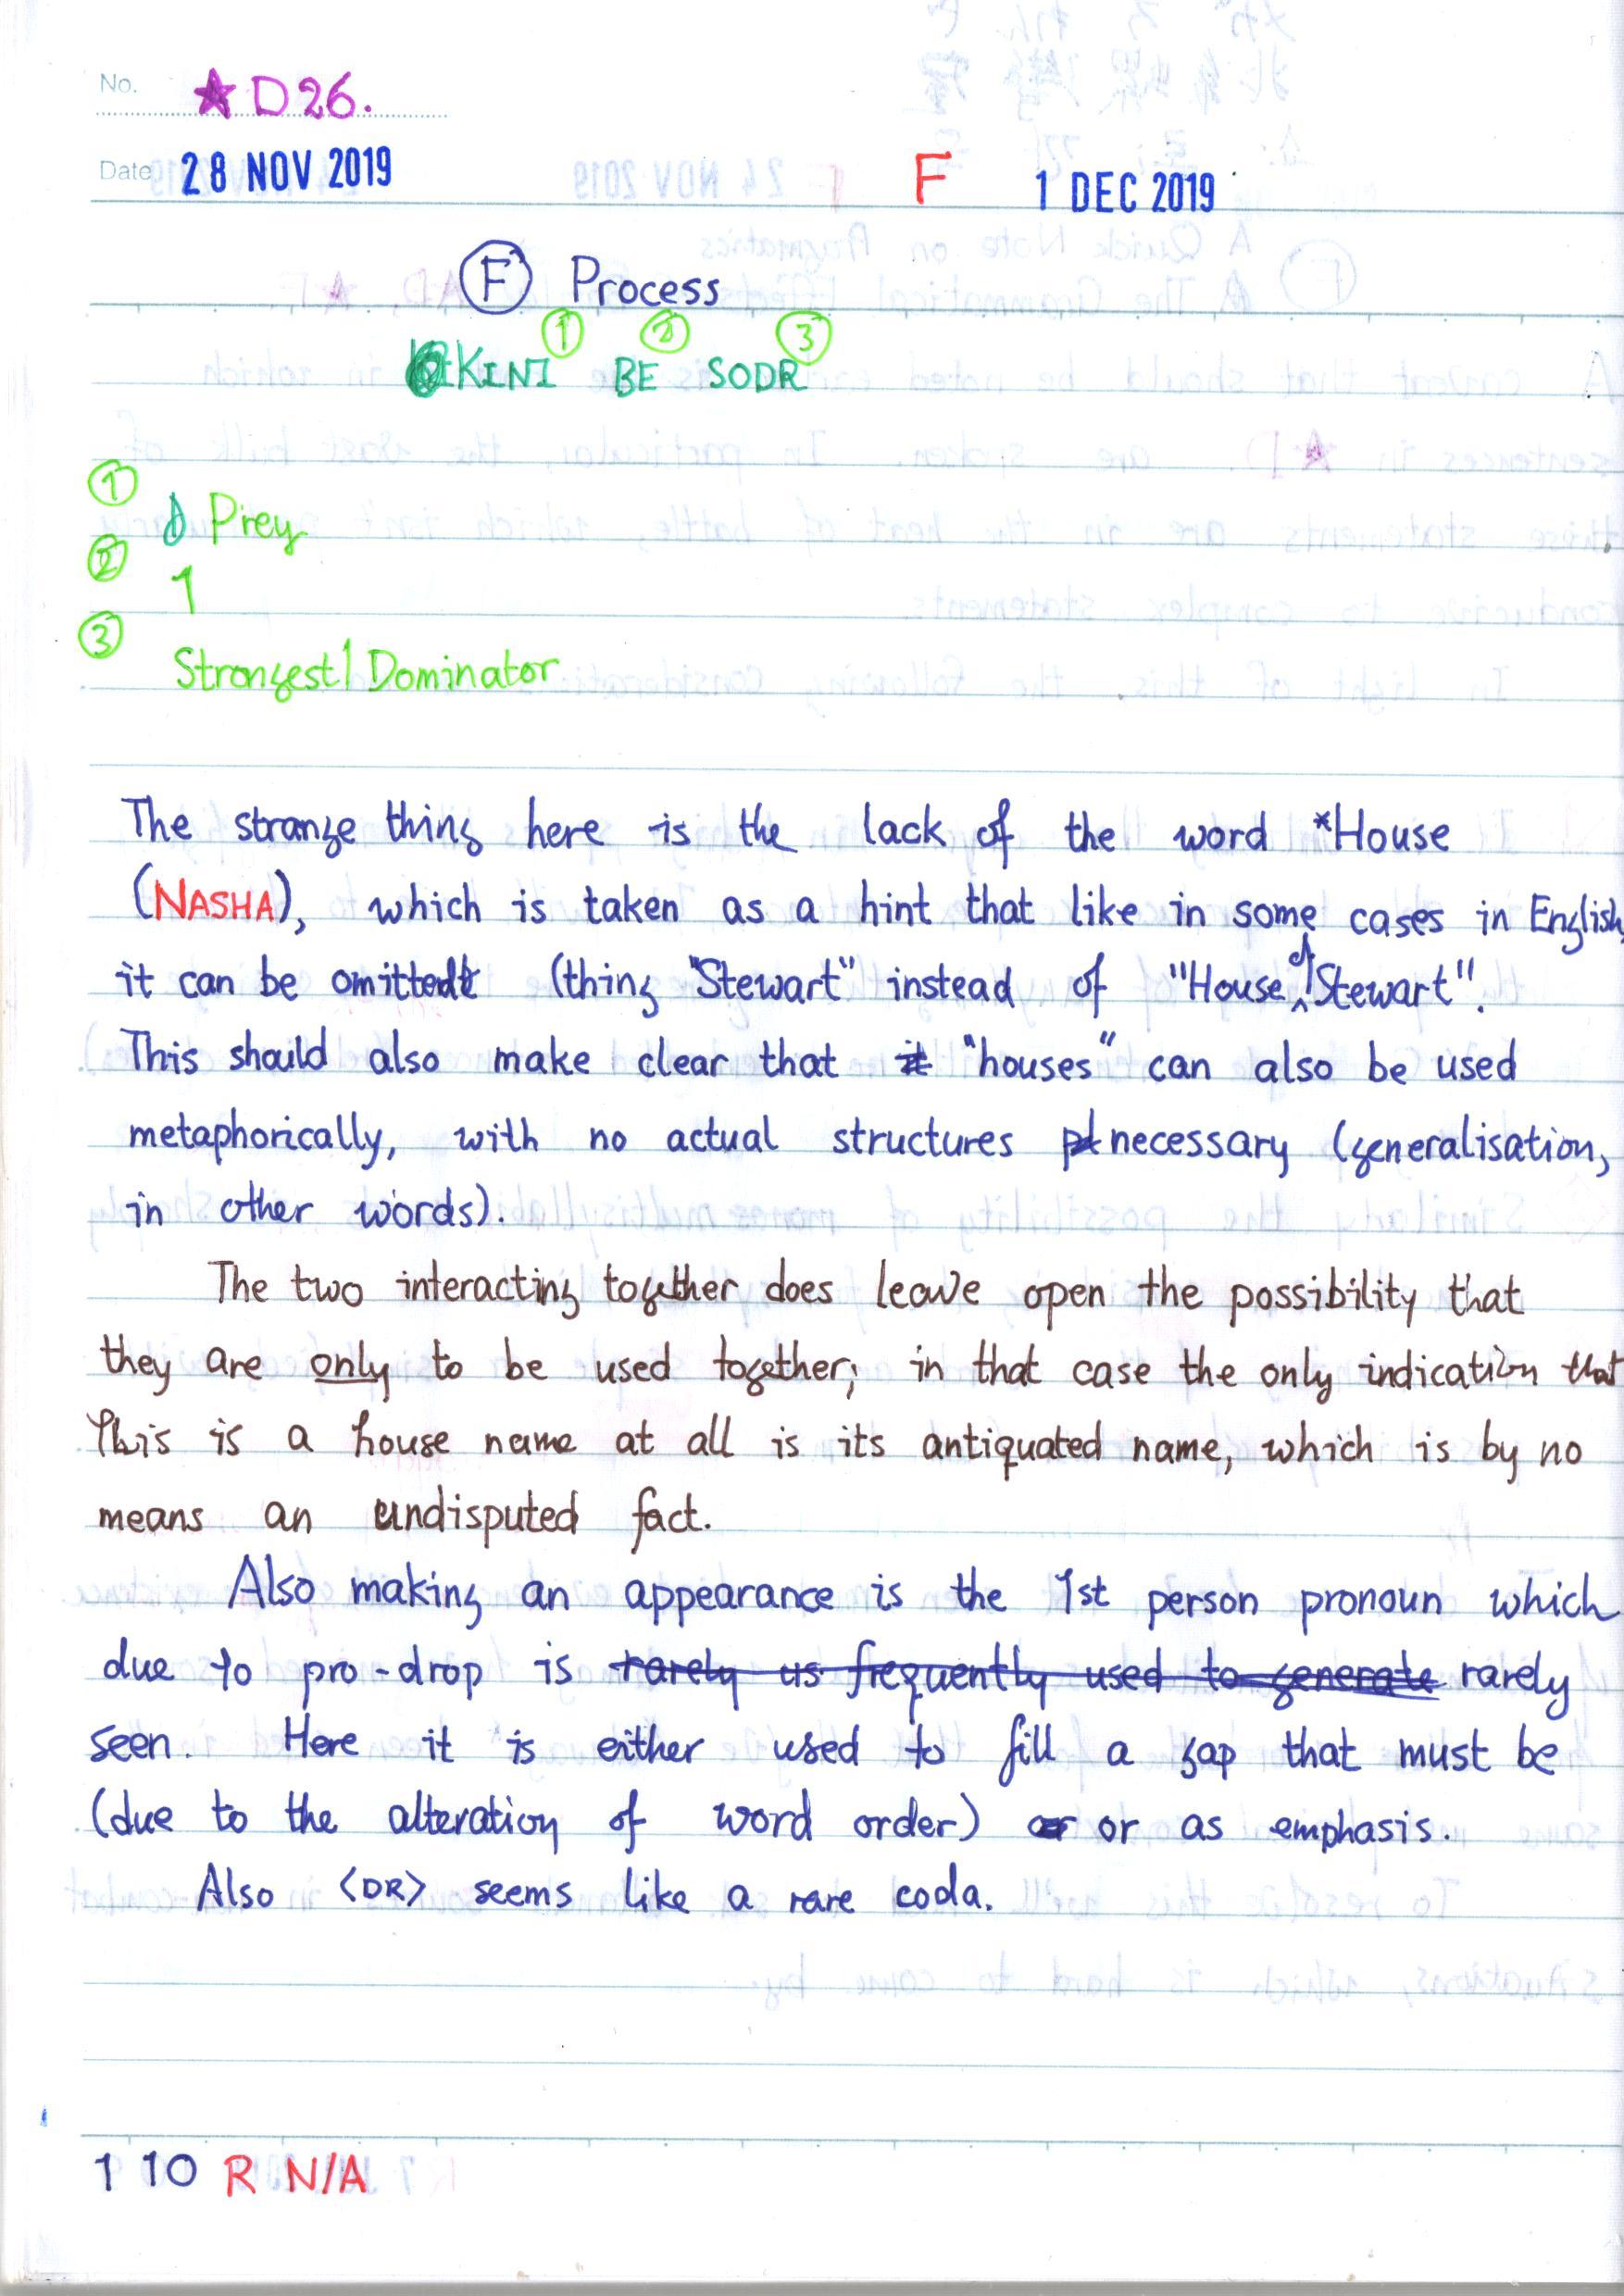 No. ★D26.
Date 28 NOV 2019 F 1 DEC 2019
Ⓕ Process
① ② ③
KINI BE SODR
① Prey
② 1
③ Strongest/Dominator
The strange thing here is the lack of the word *House
(NASHA), which is taken as a hint that like in some cases in English
it can be omitted (thing "Stewart" instead of "House of Stewart".
This should also make clear that "houses" can also be used
metaphorically, with no actual structures necessary (generalisation,
in other words).
The two interacting together does leave open the possibility that
they are only to be used together; in that case the only indication that
this is a house name at all is its antiquated name, which is by no
means an undisputed fact.
Also making an appearance is the 1st person pronoun which
due to pro-drop is rarely us frequently used to generate rarely
seen. Here it is either used to fill a gap that must be
(due to the alteration of word order) or or as emphasis.
Also <DR> seems like a rare coda.
110 R N/A